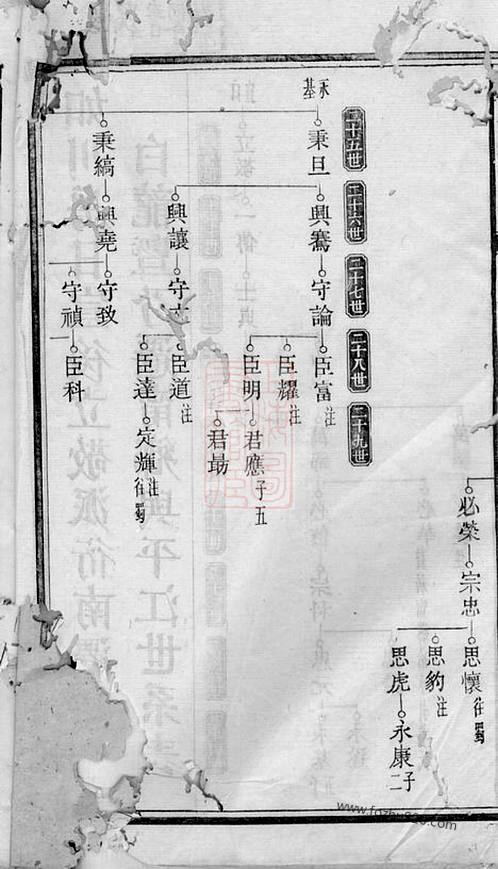 必榮 宗忠 思懷 往蜀
思豹 注
思虎 永康 子二
二十五世 二十六世 二十七世 二十八世 二十九世
永基
秉旦 興騫 守論 臣富 注
臣耀 注
臣明 君應 子五
君勗
興讓 守文 臣道 注
臣達 定輝 注 往蜀
秉縞 興堯 守致
守禎 臣科